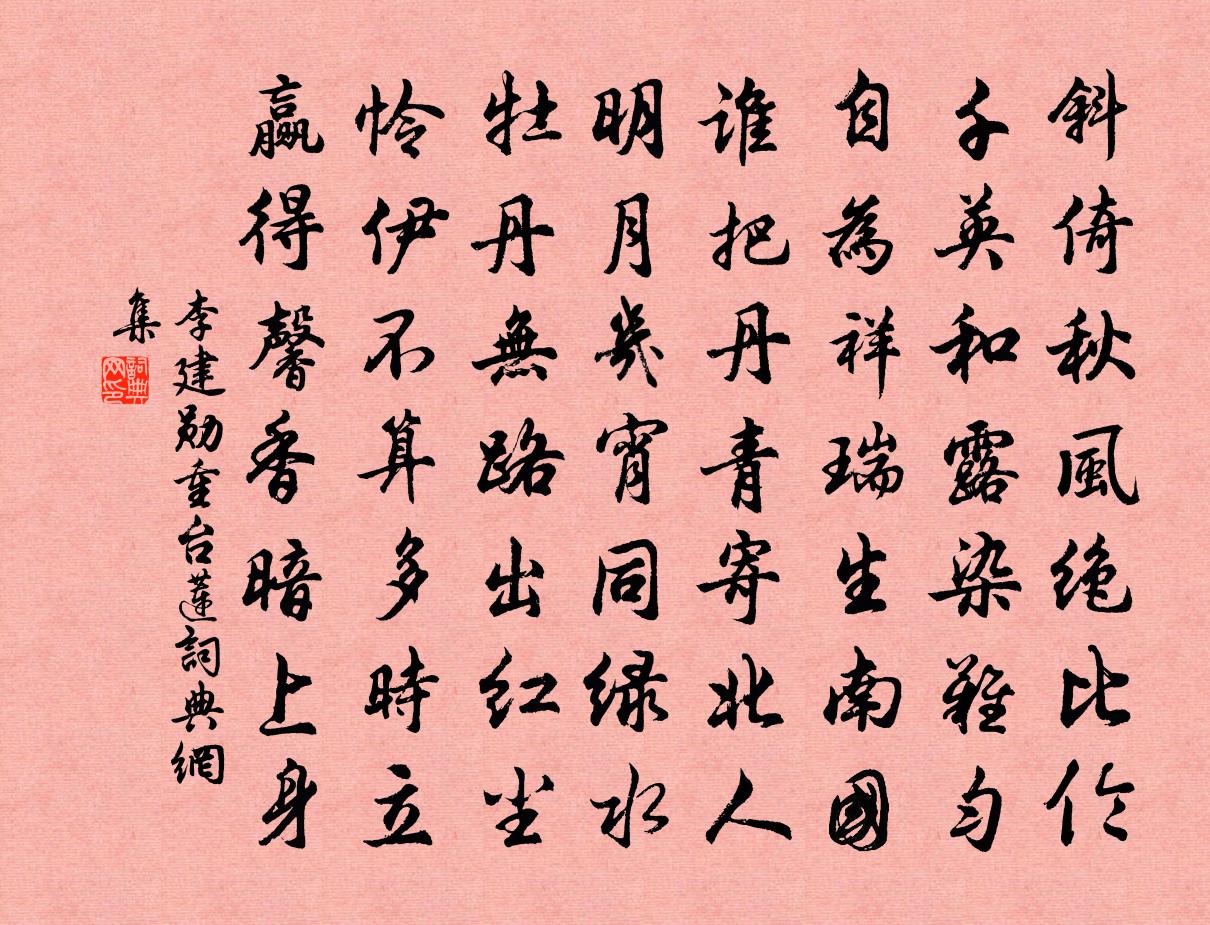 斜倚秋風絶比伦
千英和露染難匀
自為祥瑞生南國
谁把丹青寄北人
明月幾宵同緑水
牡丹無路出红尘
怜伊不算多時立
赢得馨香暗上身
李建勋重台蓮詞典網
集
詞典
网印